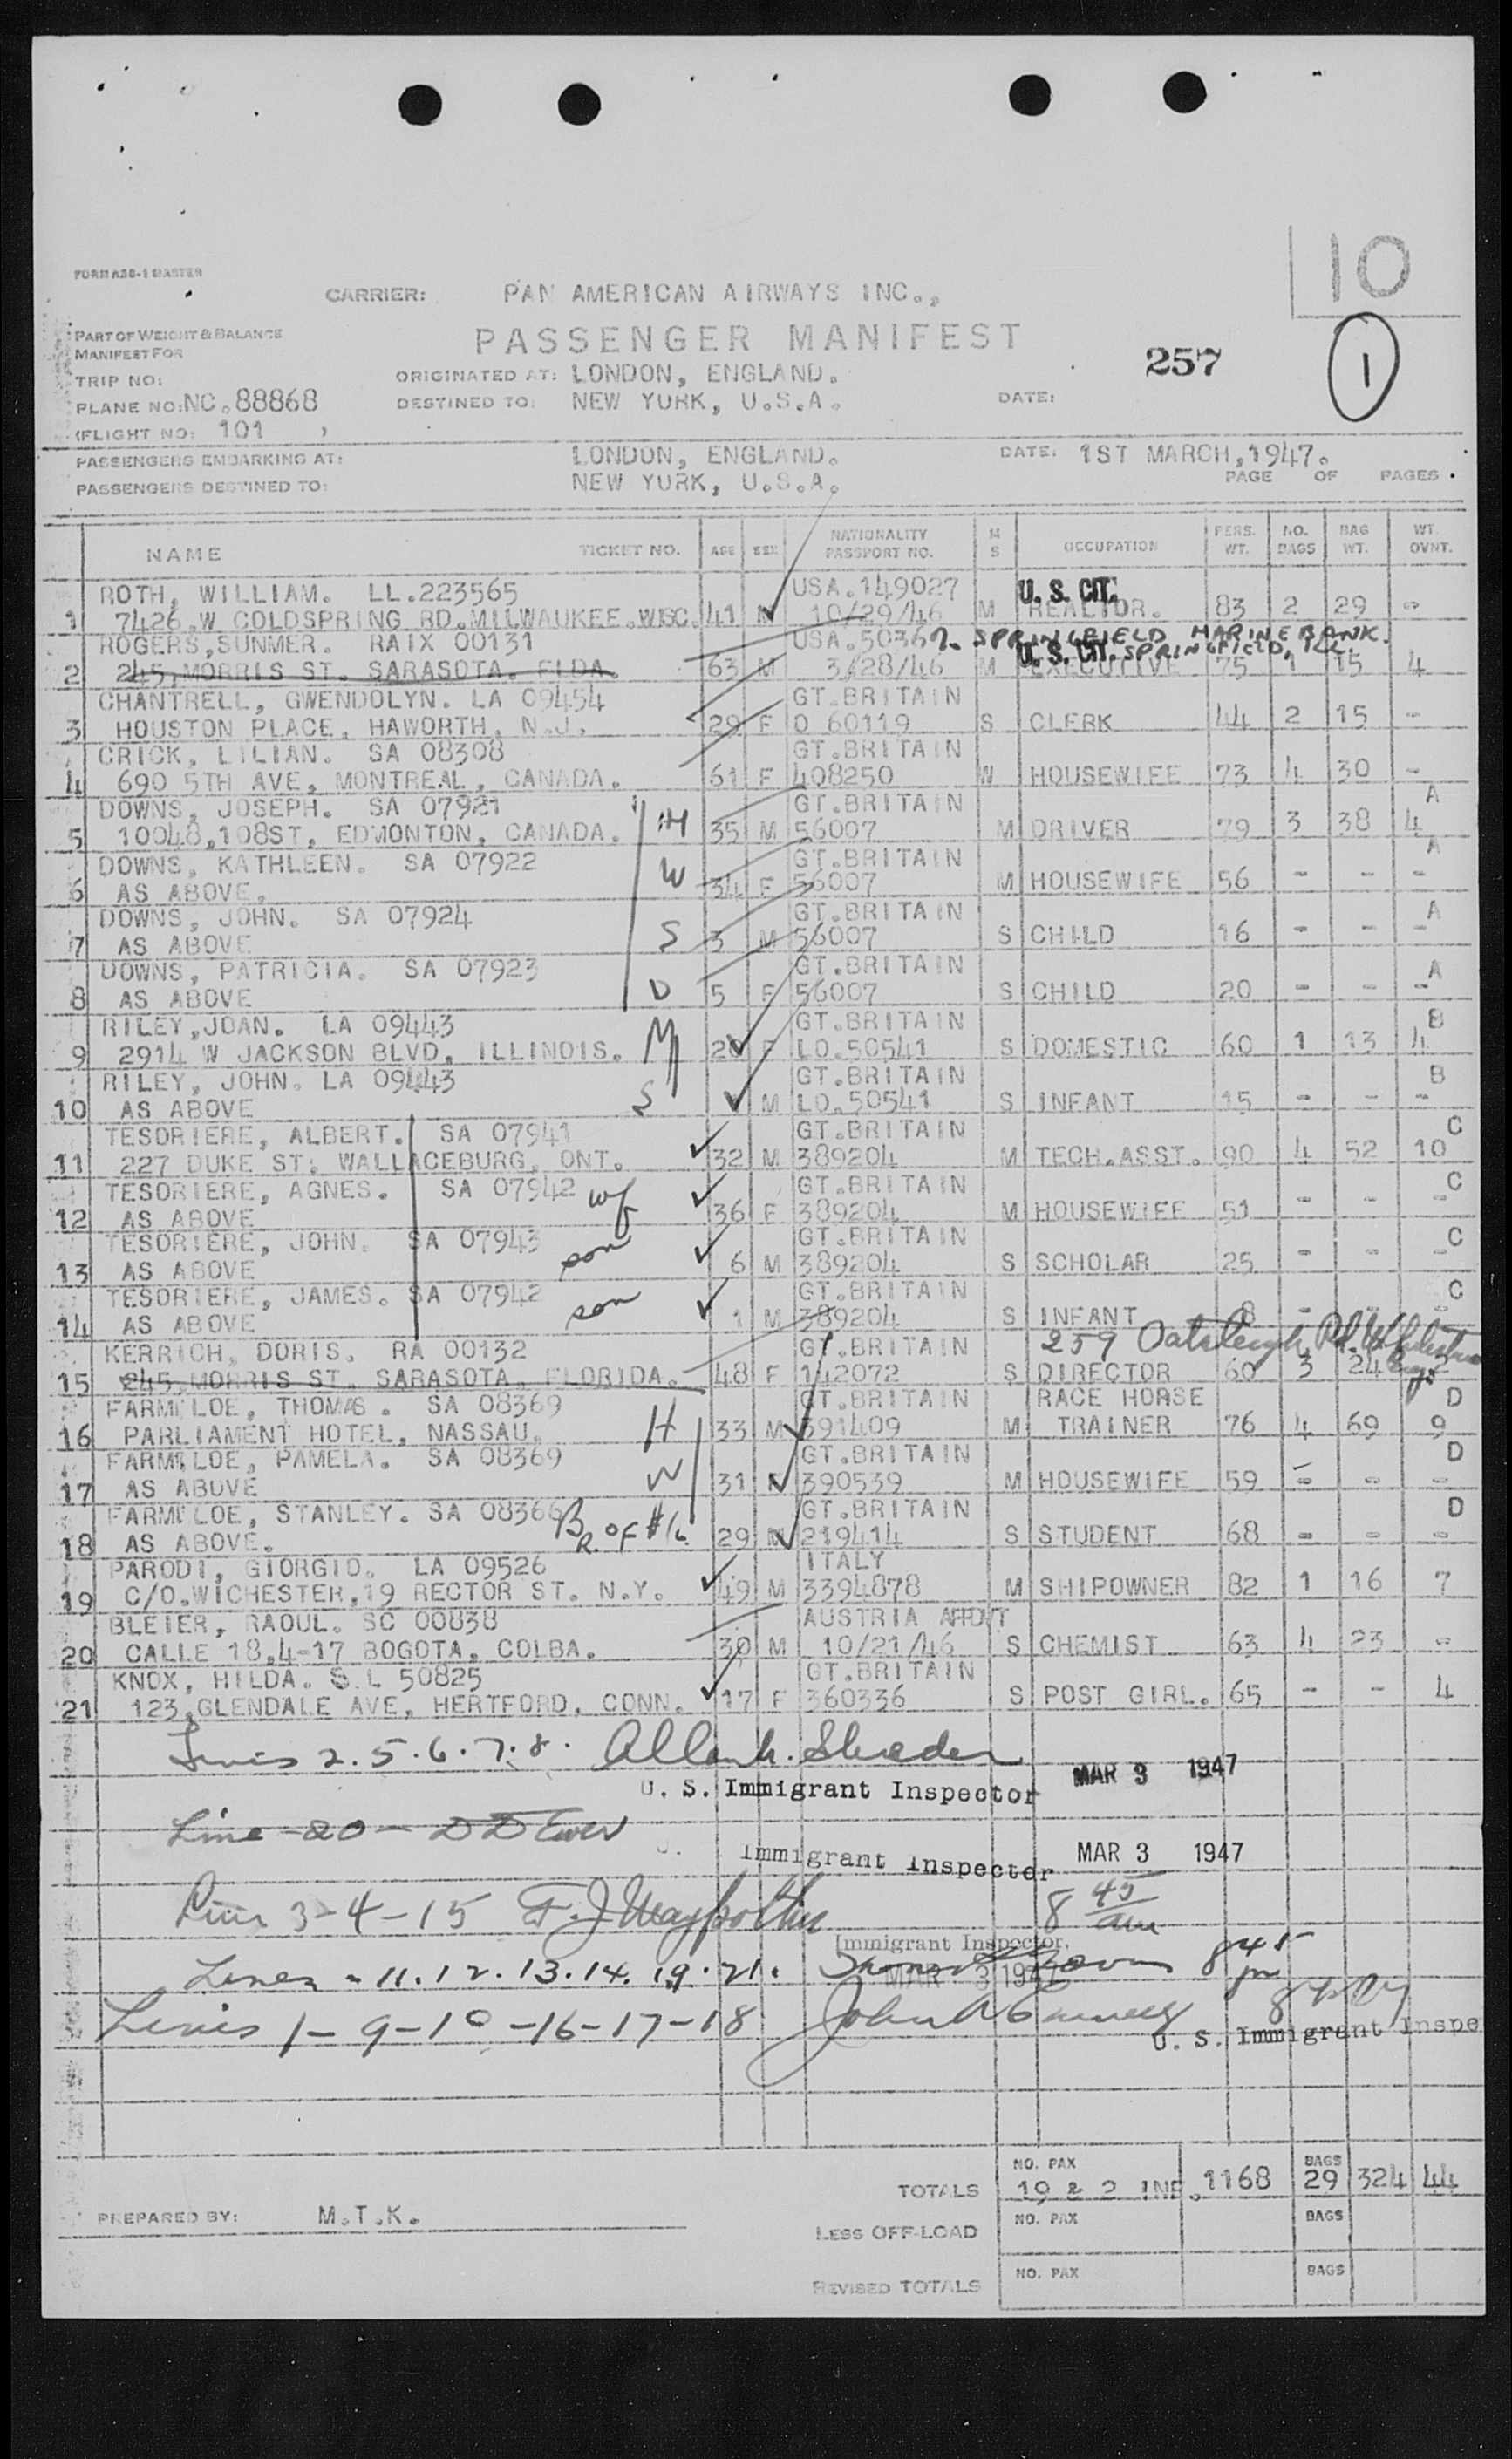 10
FORM A38-1 MASTER
CARRIER: PAN AMERICAN AIRWAYS INC.,
PART OF WEIGHT & BALANCE
MANIFEST FOR
PASSENGER MANIFEST
257
1
TRIP NO:
ORIGINATED AT: LONDON, ENGLAND.
PLANE NO: NC.88868
DESTINED TO: NEW YORK, U.S.A.
DATE:
(FLIGHT NO: 101 )
PASSENGERS EMBARKING AT: LONDON, ENGLAND.
DATE: 1ST MARCH,1947.
PASSENGERS DESTINED TO: NEW YORK, U.S.A.
PAGE OF PAGES
NAME TICKET NO. AGE SEX NATIONALITY PASSPORT NO. M S OCCUPATION PERS. WT. NO. BAGS BAG WT. WT. OVNT.
ROTH, WILLIAM. LL.223565 USA.149027 U. S. CIT.
1 7426.W COLDSPRING RD.MILWAUKEE.WISC. 41 M 10/29/46 M REALTOR. 83 2 29 -
ROGERS,SUNMER. RAIX 00131 USA.50367 SPRINGFIELD MARINE BANK.
U. S. CIT. SPRINGFIELD, ILL.
2 245,MORRIS ST. SARASOTA. FLDA. 63 M 3/28/46 M EXECUTIVE 75 1 15 4
CHANTRELL, GWENDOLYN. LA 09454 GT.BRITAIN
3 HOUSTON PLACE, HAWORTH, N.J. 29 F O 60119 S CLERK 44 2 15 -
CRICK, LILIAN. SA 08308 GT.BRITAIN
4 690 5TH AVE, MONTREAL, CANADA. 61 F 408250 W HOUSEWIFE 73 4 30 -
DOWNS, JOSEPH. SA 07921 GT.BRITAIN A
5 10048,108ST, EDMONTON, CANADA. H 35 M 56007 M DRIVER 79 3 38 4
DOWNS, KATHLEEN. SA 07922 GT.BRITAIN A
6 AS ABOVE, W 34 F 56007 M HOUSEWIFE 56 - - -
DOWNS, JOHN. SA 07924 GT.BRITAIN A
7 AS ABOVE S 3 M 56007 S CHILD 16 - - -
DOWNS, PATRICIA. SA 07923 GT.BRITAIN A
8 AS ABOVE D 5 F 56007 S CHILD 20 - - -
RILEY,JOAN. LA 09443 GT.BRITAIN B
9 2914 W JACKSON BLVD, ILLINOIS. M 20 F LO.50541 S DOMESTIC 60 1 13 4
RILEY, JOHN. LA 09443 GT.BRITAIN B
10 AS ABOVE S M LO.50541 S INFANT 15 - - -
TESORIERE, ALBERT. SA 07941 GT.BRITAIN C
11 227 DUKE ST, WALLACEBURG, ONT. 32 M 389204 M TECH.ASST. 90 4 52 10
TESORIERE, AGNES. SA 07942 wf GT.BRITAIN C
12 AS ABOVE 36 F 389204 M HOUSEWIFE 51 - - -
TESORIERE, JOHN. SA 07943 son GT.BRITAIN C
13 AS ABOVE 6 M 389204 S SCHOLAR 25 - - -
TESORIERE, JAMES. SA 07942 son GT.BRITAIN C
14 AS ABOVE 1 M 389204 S INFANT 8 - - -
KERRICH, DORIS. RA 00132 GT.BRITAIN 259
15 245,MORRIS ST. SARASOTA, FLORIDA. 48 F 142072 S DIRECTOR 60 3 24
FARMILOE, THOMAS. SA 08369 GT.BRITAIN RACE HORSE D
16 PARLIAMENT HOTEL, NASSAU. H 33 M 391409 M TRAINER 76 4 69 9
FARMILOE, PAMELA. SA 08369 GT.BRITAIN D
17 AS ABOVE W 31 F 390539 M HOUSEWIFE 59 - - -
FARMILOE, STANLEY. SA 08366 GT.BRITAIN D
18 AS ABOVE. BR. OF #16 29 M 219414 S STUDENT 68 - - -
PARODI, GIORGIO. LA 09526 ITALY
19 C/O.WICHESTER,19 RECTOR ST. N.Y. 49 M 3394878 M SHIPOWNER 82 1 16 7
BLEIER, RAOUL. SC 00838 AUSTRIA AFFDVT
20 CALLE 18,4-17 BOGOTA, COLBA. 30 M 10/21/46 S CHEMIST 63 4 23 -
KNOX, HILDA. S.L 50825 GT.BRITAIN
21 123,GLENDALE AVE, HERTFORD, CONN. 17 F 360336 S POST GIRL. 65 - - 4
Lines 2.5.6.7.8.
U. S. Immigrant Inspector MAR 3 1947
Line - 20 -
Immigrant Inspector MAR 3 1947
Line 3-4-15 8 45 am
Immigrant Inspector,
Lines - 11.12.13.14.19.21. MAR 3 1947 845 pm
Lines 1-9-10-16-17-18 John
U. S. Immigrant Inspe
TOTALS NO. PAX 19 & 2 INF. 1168 BAGS 29 324 44
PREPARED BY: M.T.K.
LESS OFF-LOAD NO. PAX BAGS
REVISED TOTALS NO. PAX BAGS